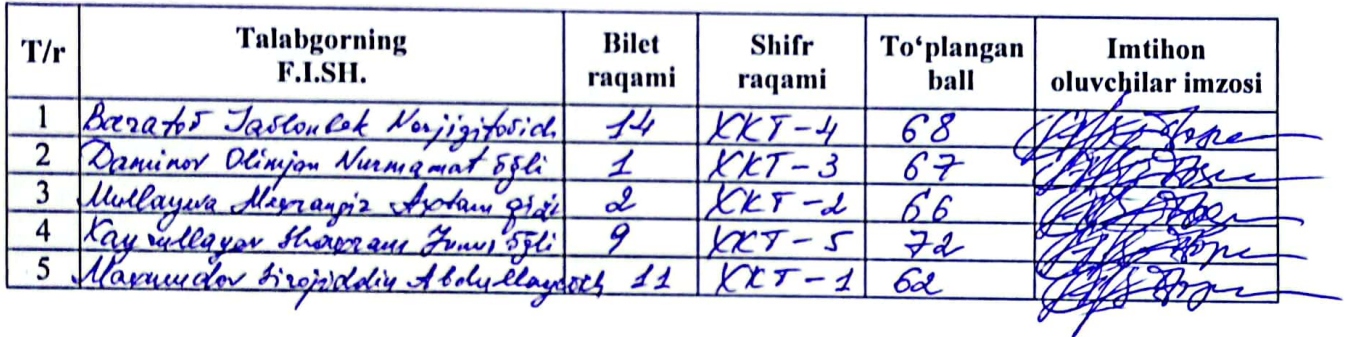 T/r Talabgorning F.I.SH. Bilet raqami Shifr raqami To‘plangan ball Imtihon oluvchilar imzosi
1 Baratov Jasloubek Norjigitovich 14 XKT-4 68
2 Daminov Olimjon Nurmamat o‘g‘li 1 XKT-3 67
3 Mullayeva Mexrangiz Axotam qizi 2 XKT-2 66
4 Xayrullayev Shoxram Junus o‘g‘li 9 XKT-5 72
5 Maxmudov Sirojiddin Abdullayevich 11 XKT-1 62